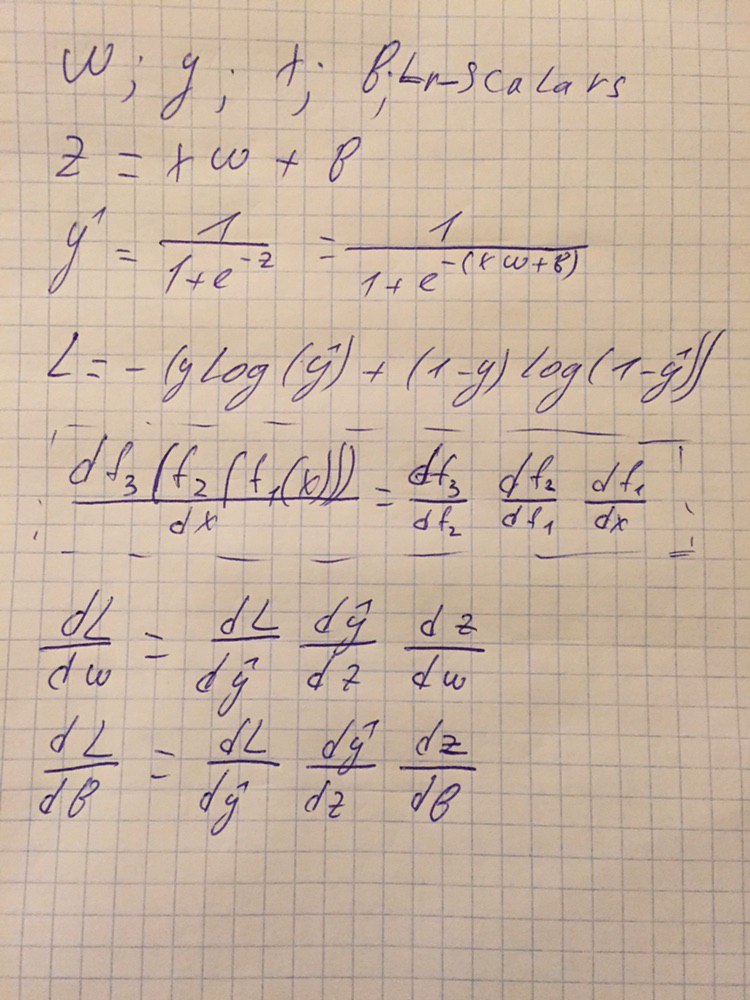 w; y; x; b; L - scalars
z = xw + b
ŷ = 1/(1+e^(-z)) = 1/(1+e^(-(xw+b)))
L = -(y log(ŷ) + (1-y) log(1-ŷ))
df₃(f₂(f₁(x)))/dx = df₃/df₂ df₂/df₁ df₁/dx
dL/dw = dL/dŷ dŷ/dz dz/dw
dL/db = dL/dŷ dŷ/dz dz/db